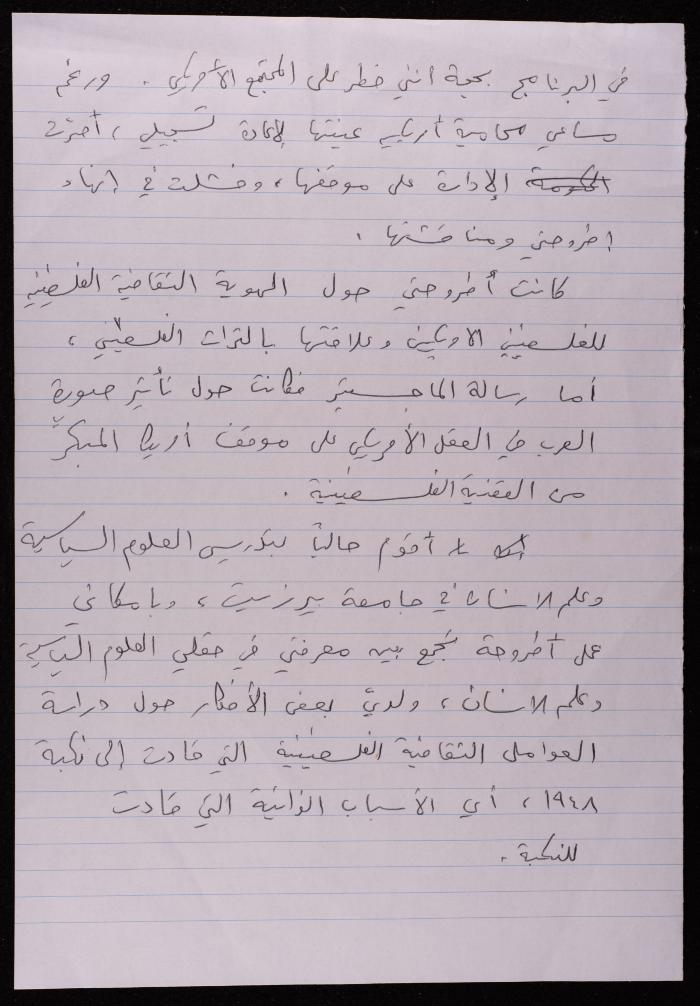 في البرنامج بحجة أنني خطر على المجتمع الأمريكي. ورغم
مساعي محامية أمريكية عينتها لإعادة تسجيلي، أصرّت
الحكومة الإدارة على موقفها، وفشلت في إنهاء
اطروحتي ومناقشتها.
كانت أطروحتي حول الهوية الثقافية الفلسطينية
للفلسطينيين الأمريكيين وعلاقتها بالتراث الفلسطيني،
أما رسالة الماجستير فكانت حول تأثير صورة
العرب في العقل الأمريكي على موقف أمريكا المبكر
من القضية الفلسطينية.
أقوم حالياً بتدريس العلوم السياسية
وعلم الانسان في جامعة بيرزيت، وبامكاني
عمل أطروحة تجمع بين معرفتي في حقلي العلوم السياسية
وعلم الانسان، ولديّ بعض الأفكار حول دراسة
العوامل الثقافية الفلسطينية التي قادت إلى نكبة
١٩٤٨، أي الأسباب الذاتية التي قادت
للنكبة.